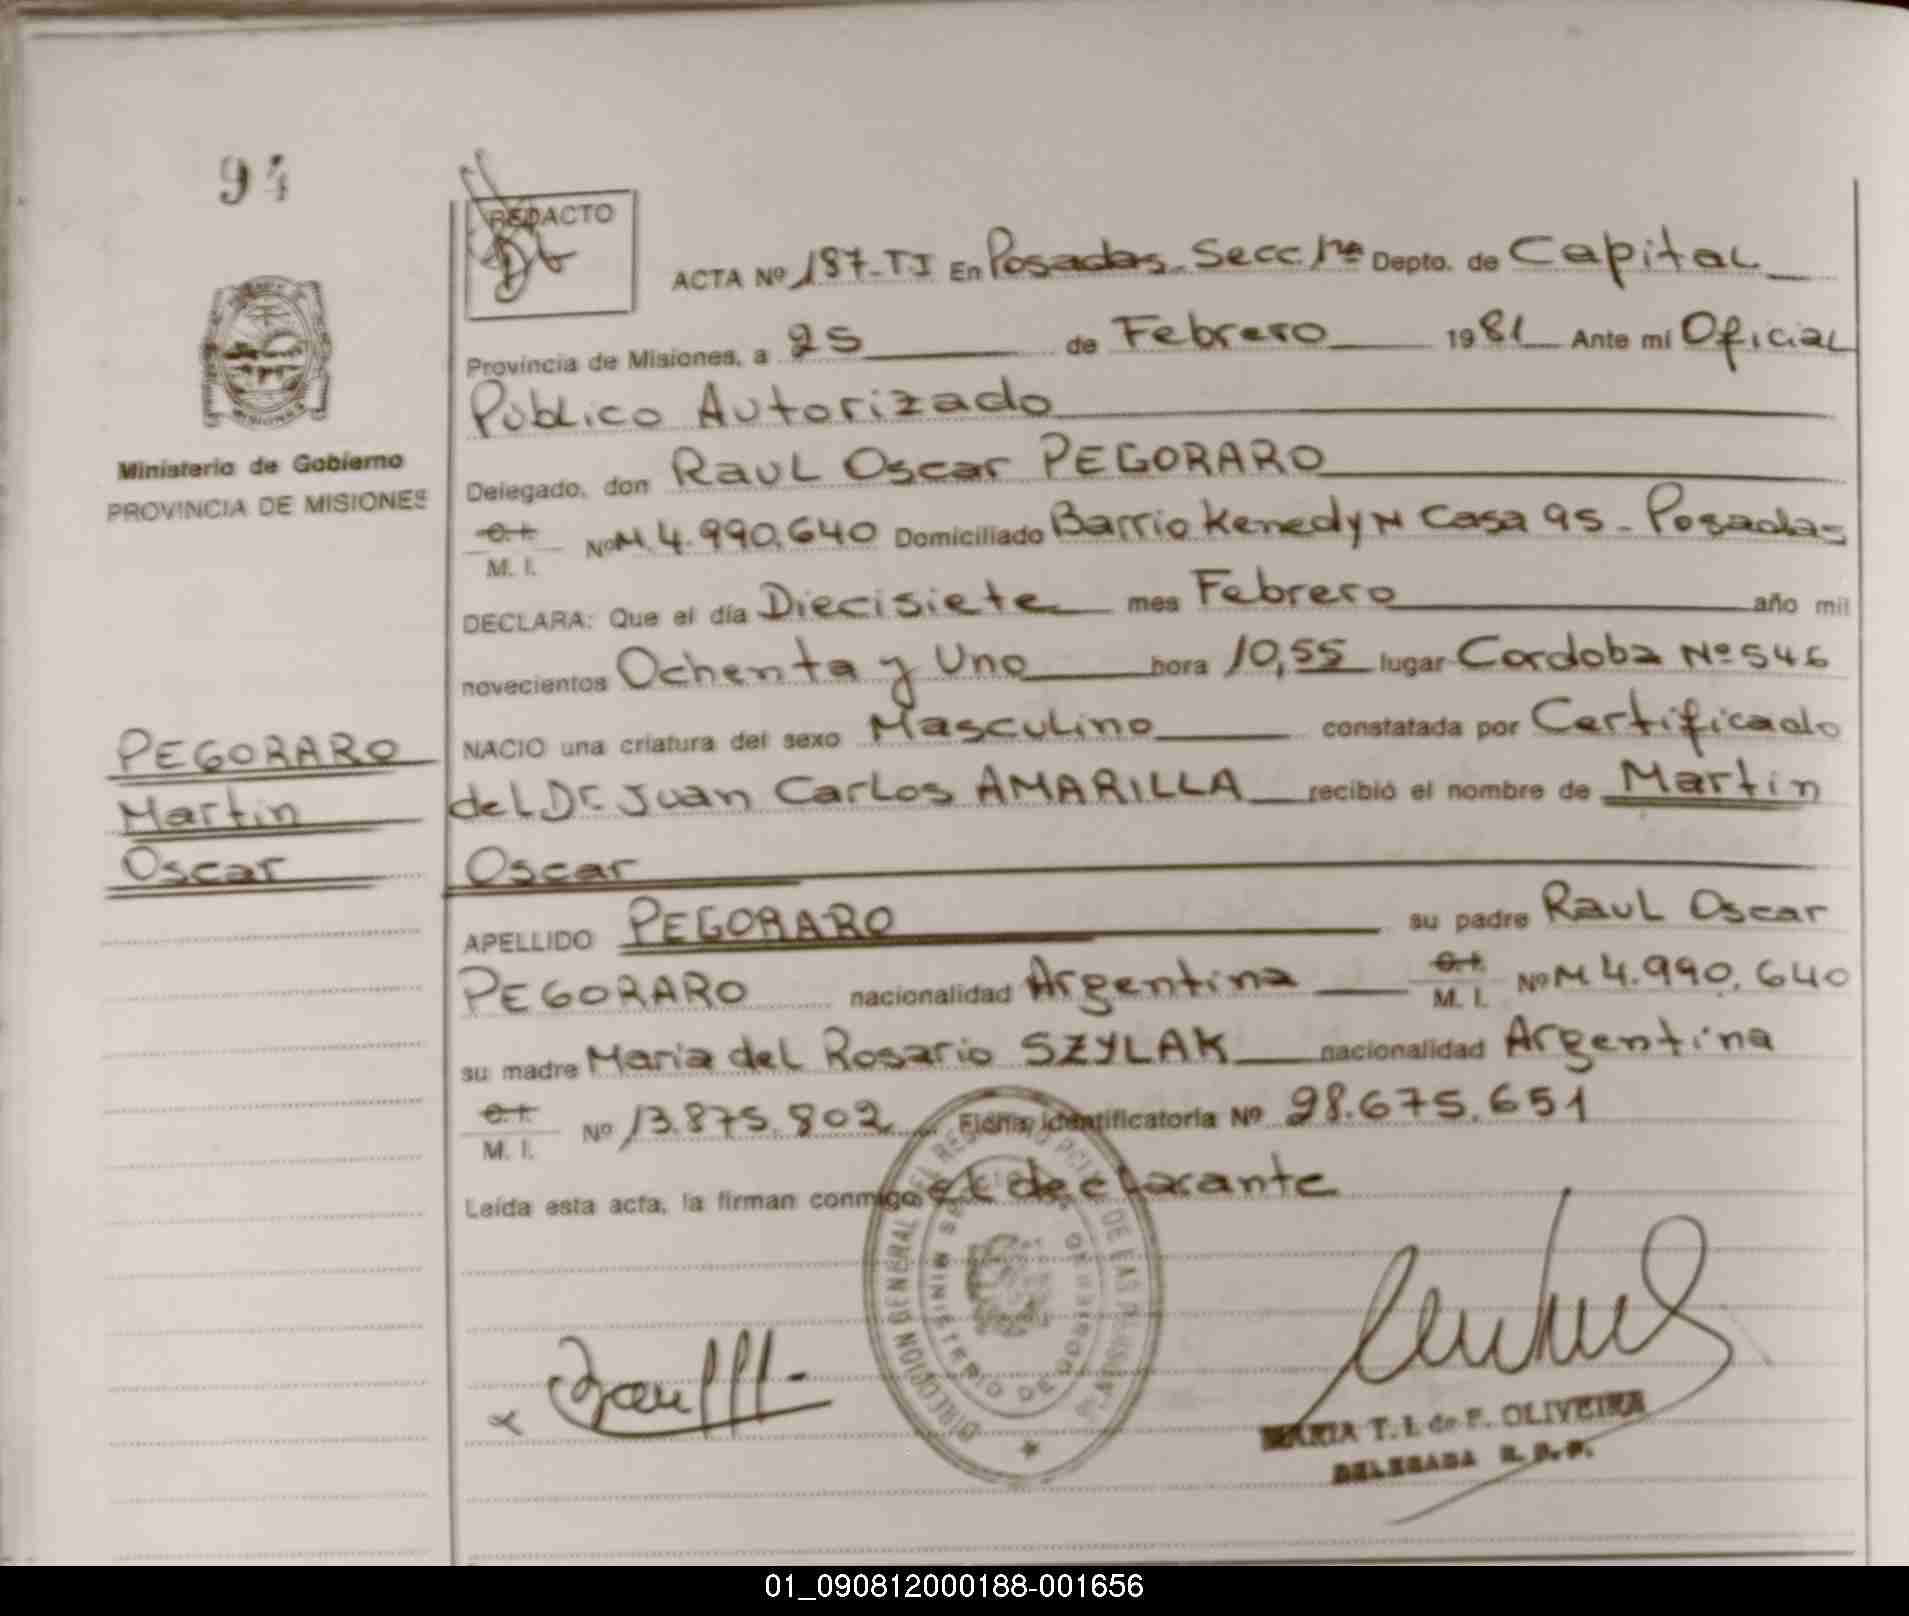 94
REDACTO
ACTA Nº 187-TI En Posadas Secc 1ra Depto. de Capital
Provincia de Misiones, a 25 de Febrero 1981 Ante mí Oficial
Publico Autorizado
Delegado, don Raul Oscar PEGORARO
C.I. M. I. Nº M. 4.990.640 Domiciliado Barrio Kenedy N Casa 95 - Posadas
DECLARA: Que el día Diecisiete mes Febrero año mil
novecientos Ochenta y Uno hora 10,55 lugar Cordoba Nº 546
NACIO una criatura del sexo Masculino constatada por Certificado
del Dr. Juan Carlos AMARILLA recibió el nombre de Martin
Oscar
APELLIDO PEGORARO su padre Raul Oscar
PEGORARO nacionalidad Argentina C.I. M. I. Nº M 4.990.640
su madre Maria del Rosario SZYLAK nacionalidad Argentina
C.I. M. I. Nº 13.875.802 Ficha identificatoria Nº 28.675.651
Leída esta acta, la firman conmigo el declarante
Ministerio de Gobierno
PROVINCIA DE MISIONES
PEGORARO
Martin
Oscar
DIRECCION GENERAL DEL REGISTRO PCIAL DE LAS PERSONAS
MINISTERIO DE GOBIERNO
MARIA T. I. de F. OLIVEIRA
DELEGADA R. P. P.
01_090812000188-001656